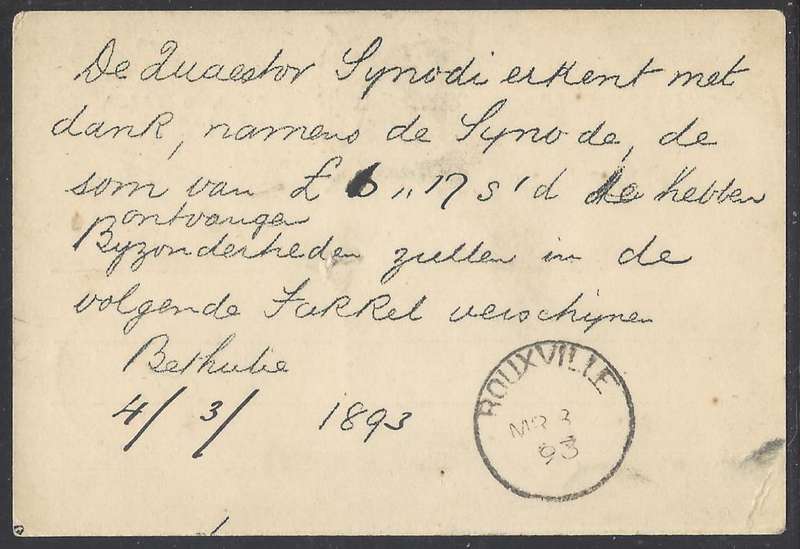 De Quaestor Synodi erkent met
dank, namens de Synode, de
som van £ 6 " 17 s ' d te hebben
ontvangen
Byzonderheden zullen in de
volgende Fakkel verschynen
Bethulie
4/ 3/ 1893
ROUXVILLE
MR 3
93